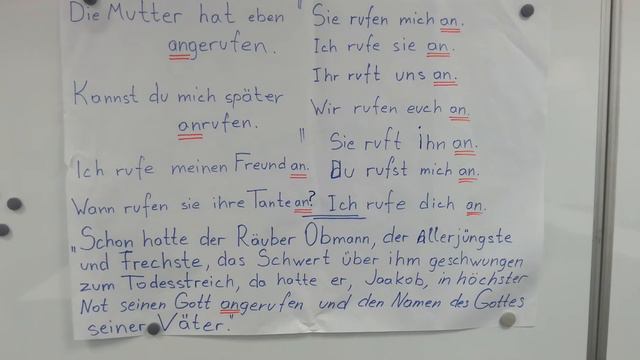 Die Mutter hat eben
angerufen.
Kannst du mich später
anrufen.
Ich rufe meinen Freund an.
Wann rufen sie ihre Tante an?
Sie rufen mich an.
Ich rufe sie an.
Ihr ruft uns an.
Wir rufen euch an.
Sie ruft ihn an.
Du rufst mich an.
Ich rufe dich an.
"Schon hatte der Räuber Obmann, der Allerjüngste
und Frechste, das Schwert über ihm geschwungen
zum Todesstreich, da hatte er, Jaakob, in höchster
Not seinen Gott angerufen und den Namen des Gottes
seiner Väter."